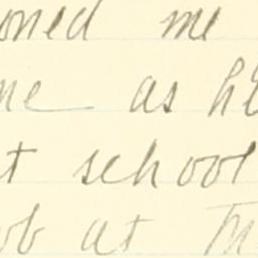 oned me
me as he
t school
ob at